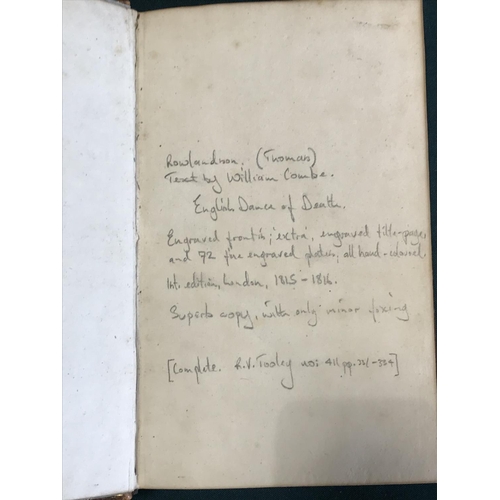 Rowlandson. (Thomas)
Text by William Combe.
English Dance of Death.
Engraved frontis; extra, engraved title-page,
and 72 fine engraved plates; all hand-colored.
1st. edition, London, 1815-1816.
Superb copy, with only minor foxing
[Complete. R.V. Tooley no: 411 pp.